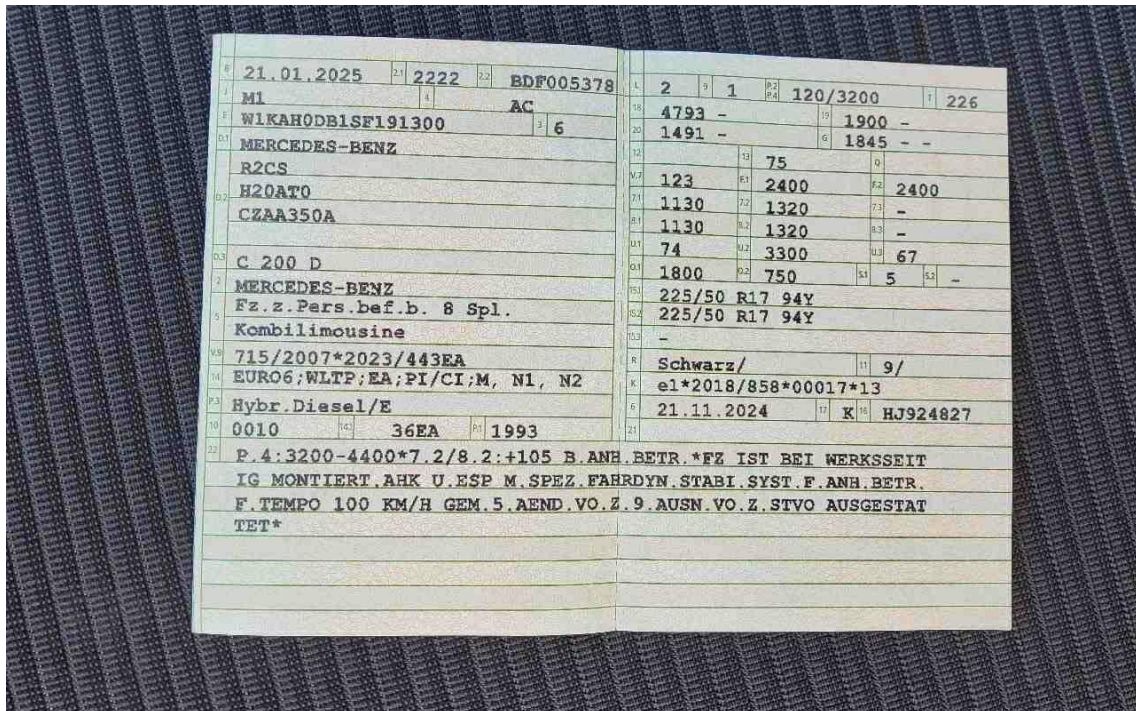 B 21.01.2025 2.1 2222 2.2 BDF005378
J M1 4 AC
E W1KAH0DB1SF191300 3 6
D.1 MERCEDES-BENZ
R2CS
D.2 H20AT0
CZAA350A
D.3 C 200 D
2 MERCEDES-BENZ
5 Fz.z.Pers.bef.b. 8 Spl.
Kombilimousine
V.9 715/2007*2023/443EA
14 EURO6;WLTP;EA;PI/CI;M, N1, N2
P.3 Hybr.Diesel/E
10 0010 14.1 36EA P.1 1993
L 2 9 1 P.2 P.4 120/3200 T 226
18 4793 - 19 1900 -
20 1491 - G 1845 - -
12 13 75 Q
V.7 123 F.1 2400 F.2 2400
7.1 1130 7.2 1320 7.3 -
8.1 1130 8.2 1320 8.3 -
U.1 74 U.2 3300 U.3 67
O.1 1800 O.2 750 S.1 5 S.2 -
15.1 225/50 R17 94Y
15.2 225/50 R17 94Y
15.3 -
R Schwarz/ 11 9/
K e1*2018/858*00017*13
6 21.11.2024 17 K 16 HJ924827
21
22 P.4:3200-4400*7.2/8.2:+105 B.ANH.BETR.*FZ IST BEI WERKSSEIT
IG MONTIERT.AHK U.ESP M.SPEZ.FAHRDYN.STABI.SYST.F.ANH.BETR.
F.TEMPO 100 KM/H GEM.5.AEND.VO.Z.9.AUSN.VO.Z.STVO AUSGESTAT
TET*